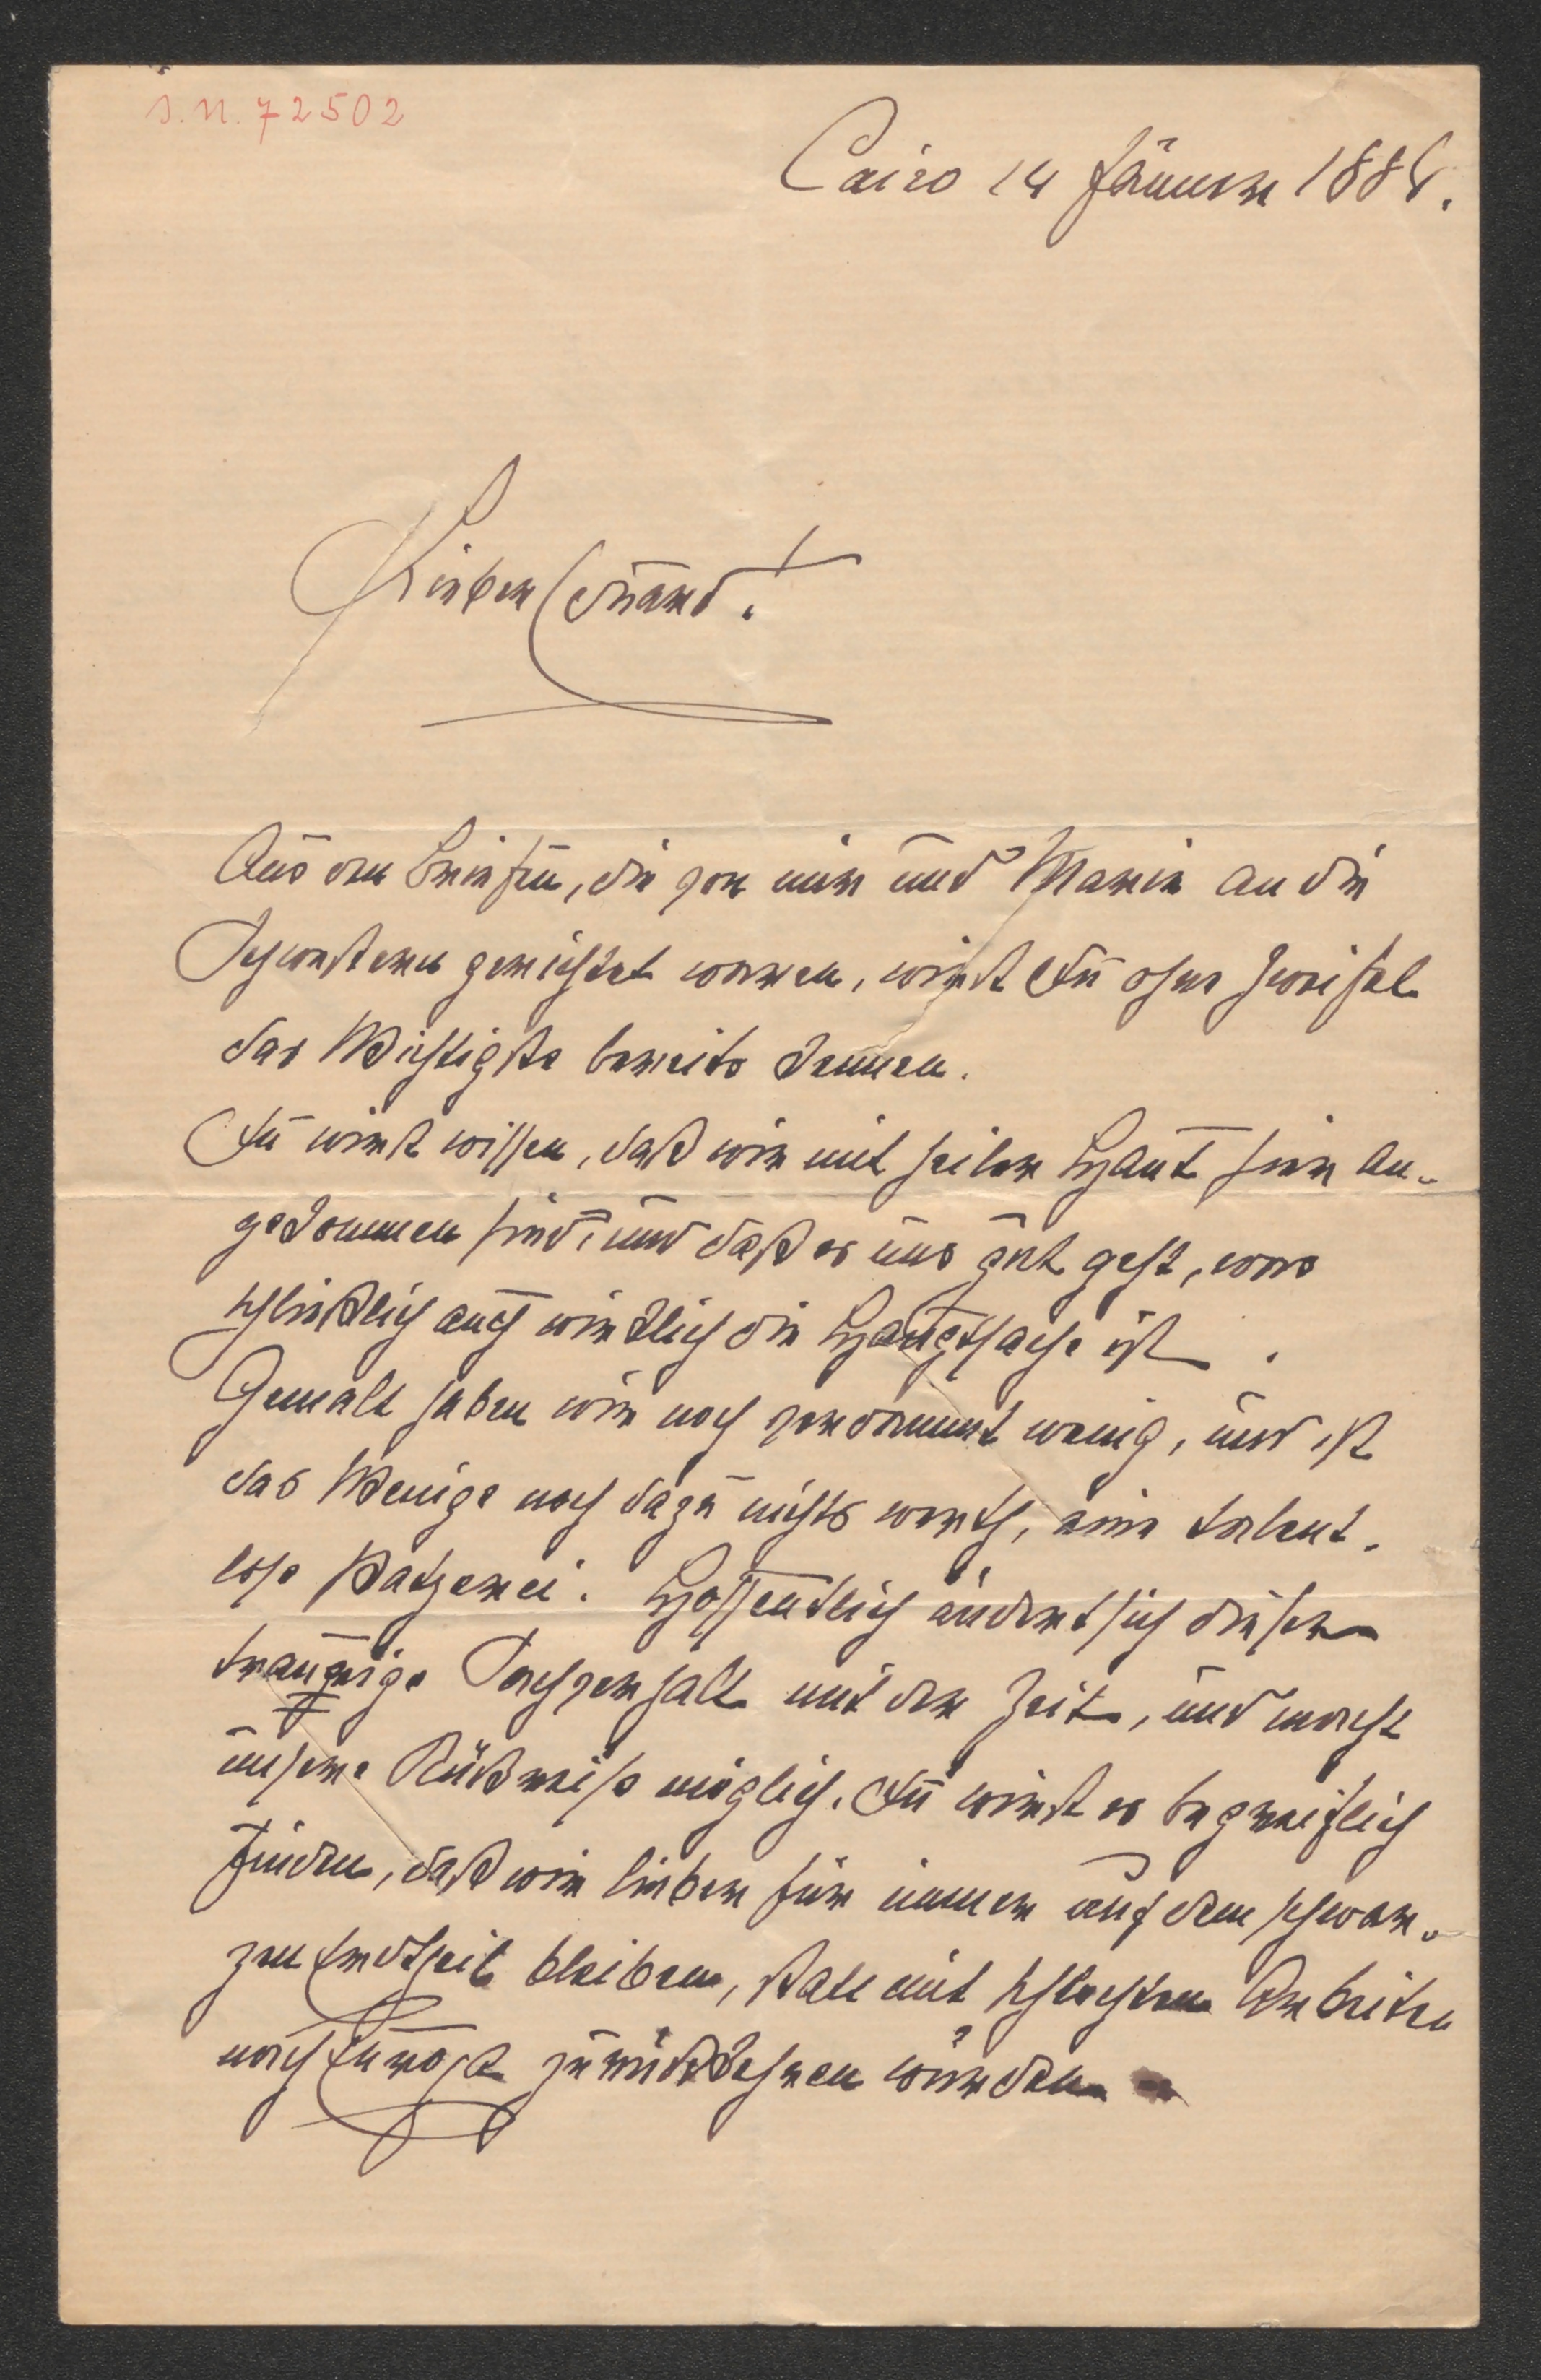 I.N. 72502
Cairo 14 Jänner 1888.
Lieber Eduard!
Aus den Briefen, die von mir und Marie an die
Schwestern gerichtet waren, wirst Du ohne Zweifel
das Wichtigste bereits kennen.
Du wirst wissen, daß wir mit heiler Haut hier an-
gekommen sind, und daß es uns gut geht, was
schließlich auch wirklich die Hauptsache ist.
Gemalt haben wir noch verdammt wenig, und ist
das Wenige noch dazu nichts werth, eine talent-
lose Patzerei. Hoffentlich ändert sich dieser
traurige Sachverhalt mit der Zeit, und macht
unsere Rückreise möglich. Du wirst es begreiflich
finden, daß wir lieber für immer auf dem schwar-
zen Erdtheil bleiben, statt mit schlechten Arbeiten
nach Europa zurückkehren würden